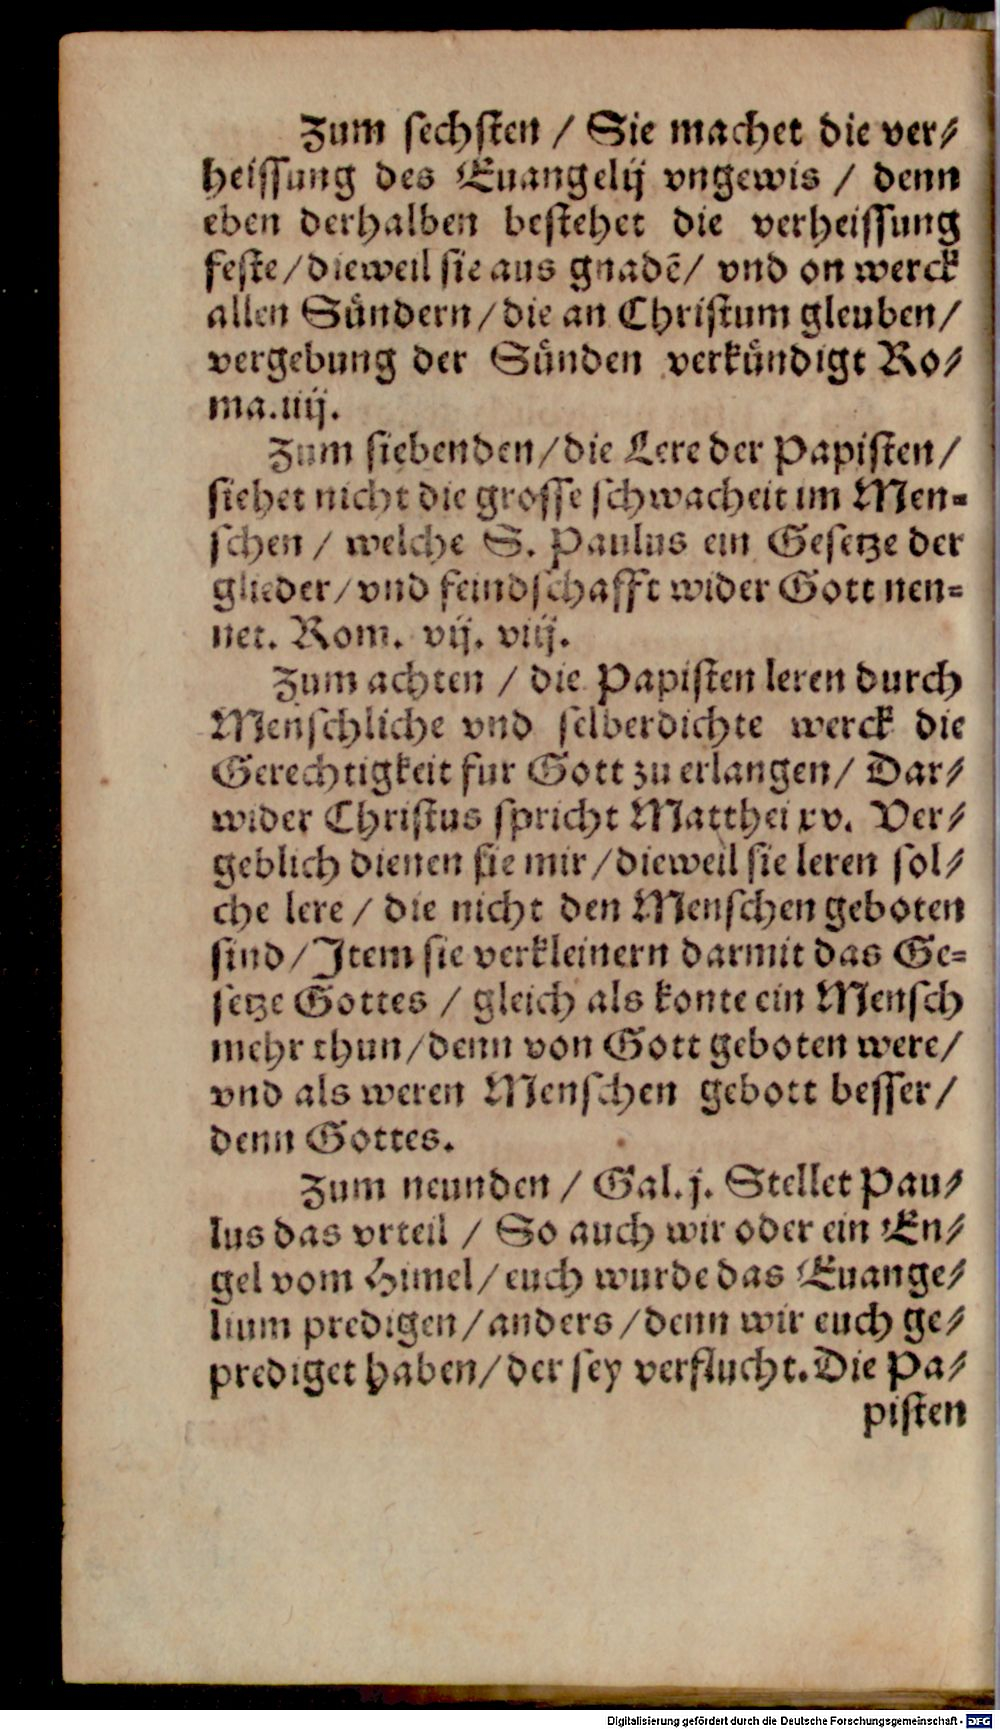 Zum sechsten / Sie machet die ver⸗
heissung des Euangelij vngewis / denn
eben derhalben bestehet die verheissung
feste / dieweil sie aus gnadē / vnd on werck
allen Sündern / die an Christum gleuben /
vergebung der Sünden verkündigt Ro⸗
ma. iiij.
Zum siebenden / die Lere der Papisten /
siehet nicht die grosse schwacheit im Men⸗
schen / welche S. Paulus ein Gesetze der
glieder / vnd feindschafft wider Gott nen⸗
net. Rom. vij. viij.
Zum achten / die Papisten leren durch
Menschliche vnd selberdichte werck die
Gerechtigkeit fur Gott zu erlangen / Dar⸗
wider Christus spricht Matthei xv. Ver⸗
geblich dienen sie mir / dieweil sie leren sol⸗
che lere / die nicht den Menschen geboten
sind / Item sie verkleinern darmit das Ge⸗
setze Gottes / gleich als konte ein Mensch
mehr thun / denn von Gott geboten were /
vnd als weren Menschen gebott besser /
denn Gottes.
Zum neunden / Gal. j. Stellet Pau⸗
lus das vrteil / So auch wir oder ein En⸗
gel vom Himel / euch wurde das Euange⸗
lium predigen / anders / denn wir euch ge⸗
prediget haben / der sey verflucht. Die Pa⸗
pisten
Digitalisierung gefördert durch die Deutsche Forschungsgemeinschaft - DFG